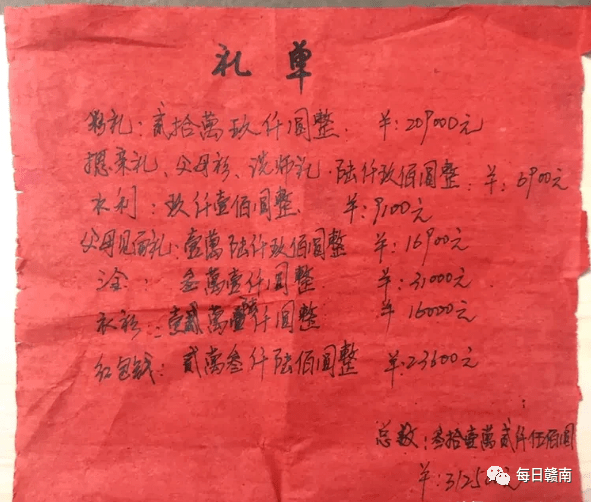 礼单
彩礼：贰拾萬玖仟圆整. 羊：209000元
揌亲礼、父母衫、洗师礼.陆仟玖佰圆整. 羊：6900元
水利：玖仟壹佰圆整. 羊：9100元
父母见面礼：壹萬陆仟玖佰圆整 羊：16900元
三金：叁萬壹仟圆整. 羊：31000元
衣衫：壹萬 仟圆整 羊 16000元
红包钱：贰萬叁仟陆佰圆整 羊：23600元
总数：叁拾壹萬贰仟伍佰圆
羊：312500元
每日赣南